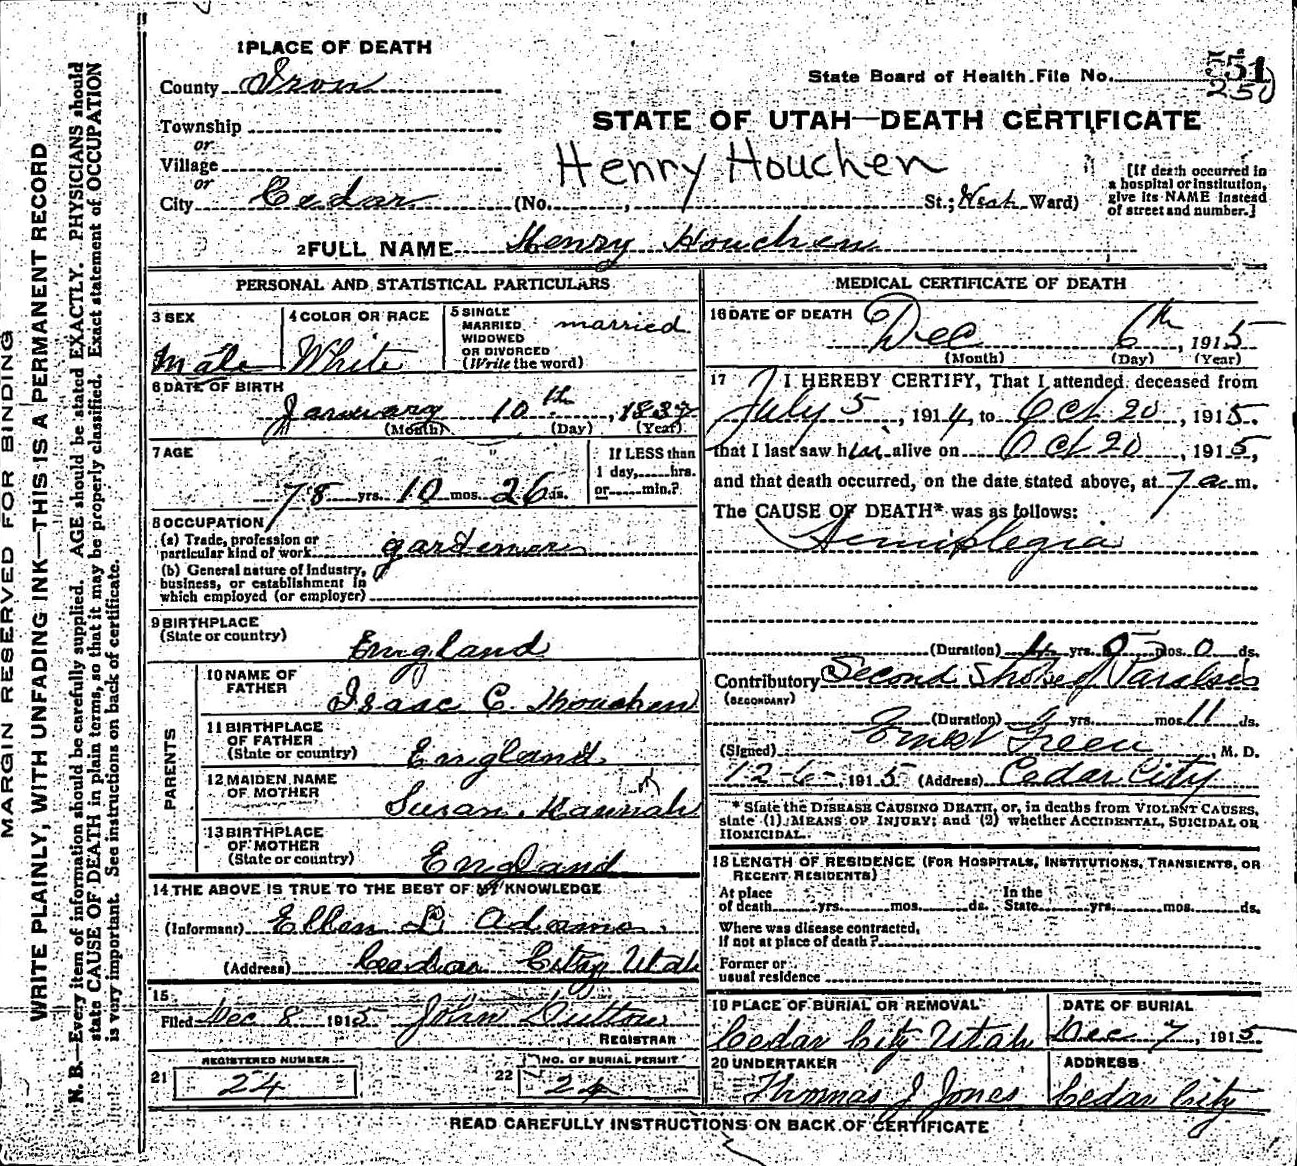 MARGIN RESERVED FOR BINDING
WRITE PLAINLY, WITH UNFADING INK—THIS IS A PERMANENT RECORD
N. B.—Every item of information should be carefully supplied. AGE should be stated EXACTLY. PHYSICIANS should
state CAUSE OF DEATH in plain terms, so that it may be properly classified. Exact statement of OCCUPATION
is very important. See instructions on back of certificate.
1 PLACE OF DEATH
County Iron
State Board of Health File No. 351
250
Township
or
Village
or
City Cedar (No. , St.; West Ward)
STATE OF UTAH—DEATH CERTIFICATE
Henry Houchen
[If death occurred in
a hospital or institution,
give its NAME instead
of street and number.]
2 FULL NAME Henry Houchen
PERSONAL AND STATISTICAL PARTICULARS
3 SEX
Male
4 COLOR OR RACE
White
5 SINGLE
MARRIED
WIDOWED
OR DIVORCED
(Write the word)
married
6 DATE OF BIRTH
January 10th, 1837
(Month) (Day) (Year)
7 AGE
78 yrs. 10 mos. 26 ds.
If LESS than
1 day, hrs.
or min.?
8 OCCUPATION
(a) Trade, profession or
particular kind of work gardiner
(b) General nature of Industry,
business, or establishment in
which employed (or employer)
9 BIRTHPLACE
(State or country)
England
PARENTS
10 NAME OF
FATHER
Isaac C. Houchen
11 BIRTHPLACE
OF FATHER
(State or country)
England
12 MAIDEN NAME
OF MOTHER
Susan Hannah
13 BIRTHPLACE
OF MOTHER
(State or country)
England
14 THE ABOVE IS TRUE TO THE BEST OF MY KNOWLEDGE
(Informant) Ellen L Adams
(Address) Cedar City Utah
15
Filed Dec 8 1915 John Dutton
REGISTRAR
REGISTERED NUMBER
21 24
NO. OF BURIAL PERMIT
22 24
MEDICAL CERTIFICATE OF DEATH
16 DATE OF DEATH
Dec 6th, 1915
(Month) (Day) (Year)
17 I HEREBY CERTIFY, That I attended deceased from
July 5, 1914, to Oct 20, 1915.
that I last saw him alive on Oct 20, 1915,
and that death occurred, on the date stated above, at 7 a.m.
The CAUSE OF DEATH* was as follows:
Hemiplegia
(Duration) 4 yrs. 5 mos. 0 ds.
Contributory Second Stroke of Paralsis
(SECONDARY)
(Duration) yrs. mos. 11 ds.
(Signed) Ernest Green M. D.
12-6- 1915 (Address) Cedar City
* State the DISEASE CAUSING DEATH, or, in deaths from VIOLENT CAUSES,
state (1) MEANS OF INJURY; and (2) whether ACCIDENTAL, SUICIDAL OR
HOMICIDAL.
18 LENGTH OF RESIDENCE (FOR HOSPITALS, INSTITUTIONS, TRANSIENTS, OR
RECENT RESIDENTS)
At place
of death yrs. mos. ds.
In the
State yrs. mos. ds.
Where was disease contracted,
if not at place of death?
Former or
usual residence
19 PLACE OF BURIAL OR REMOVAL
Cedar City Utah
DATE OF BURIAL
Dec 7, 1915
20 UNDERTAKER
Thomas J Jones
ADDRESS
Cedar City
READ CAREFULLY INSTRUCTIONS ON BACK OF CERTIFICATE